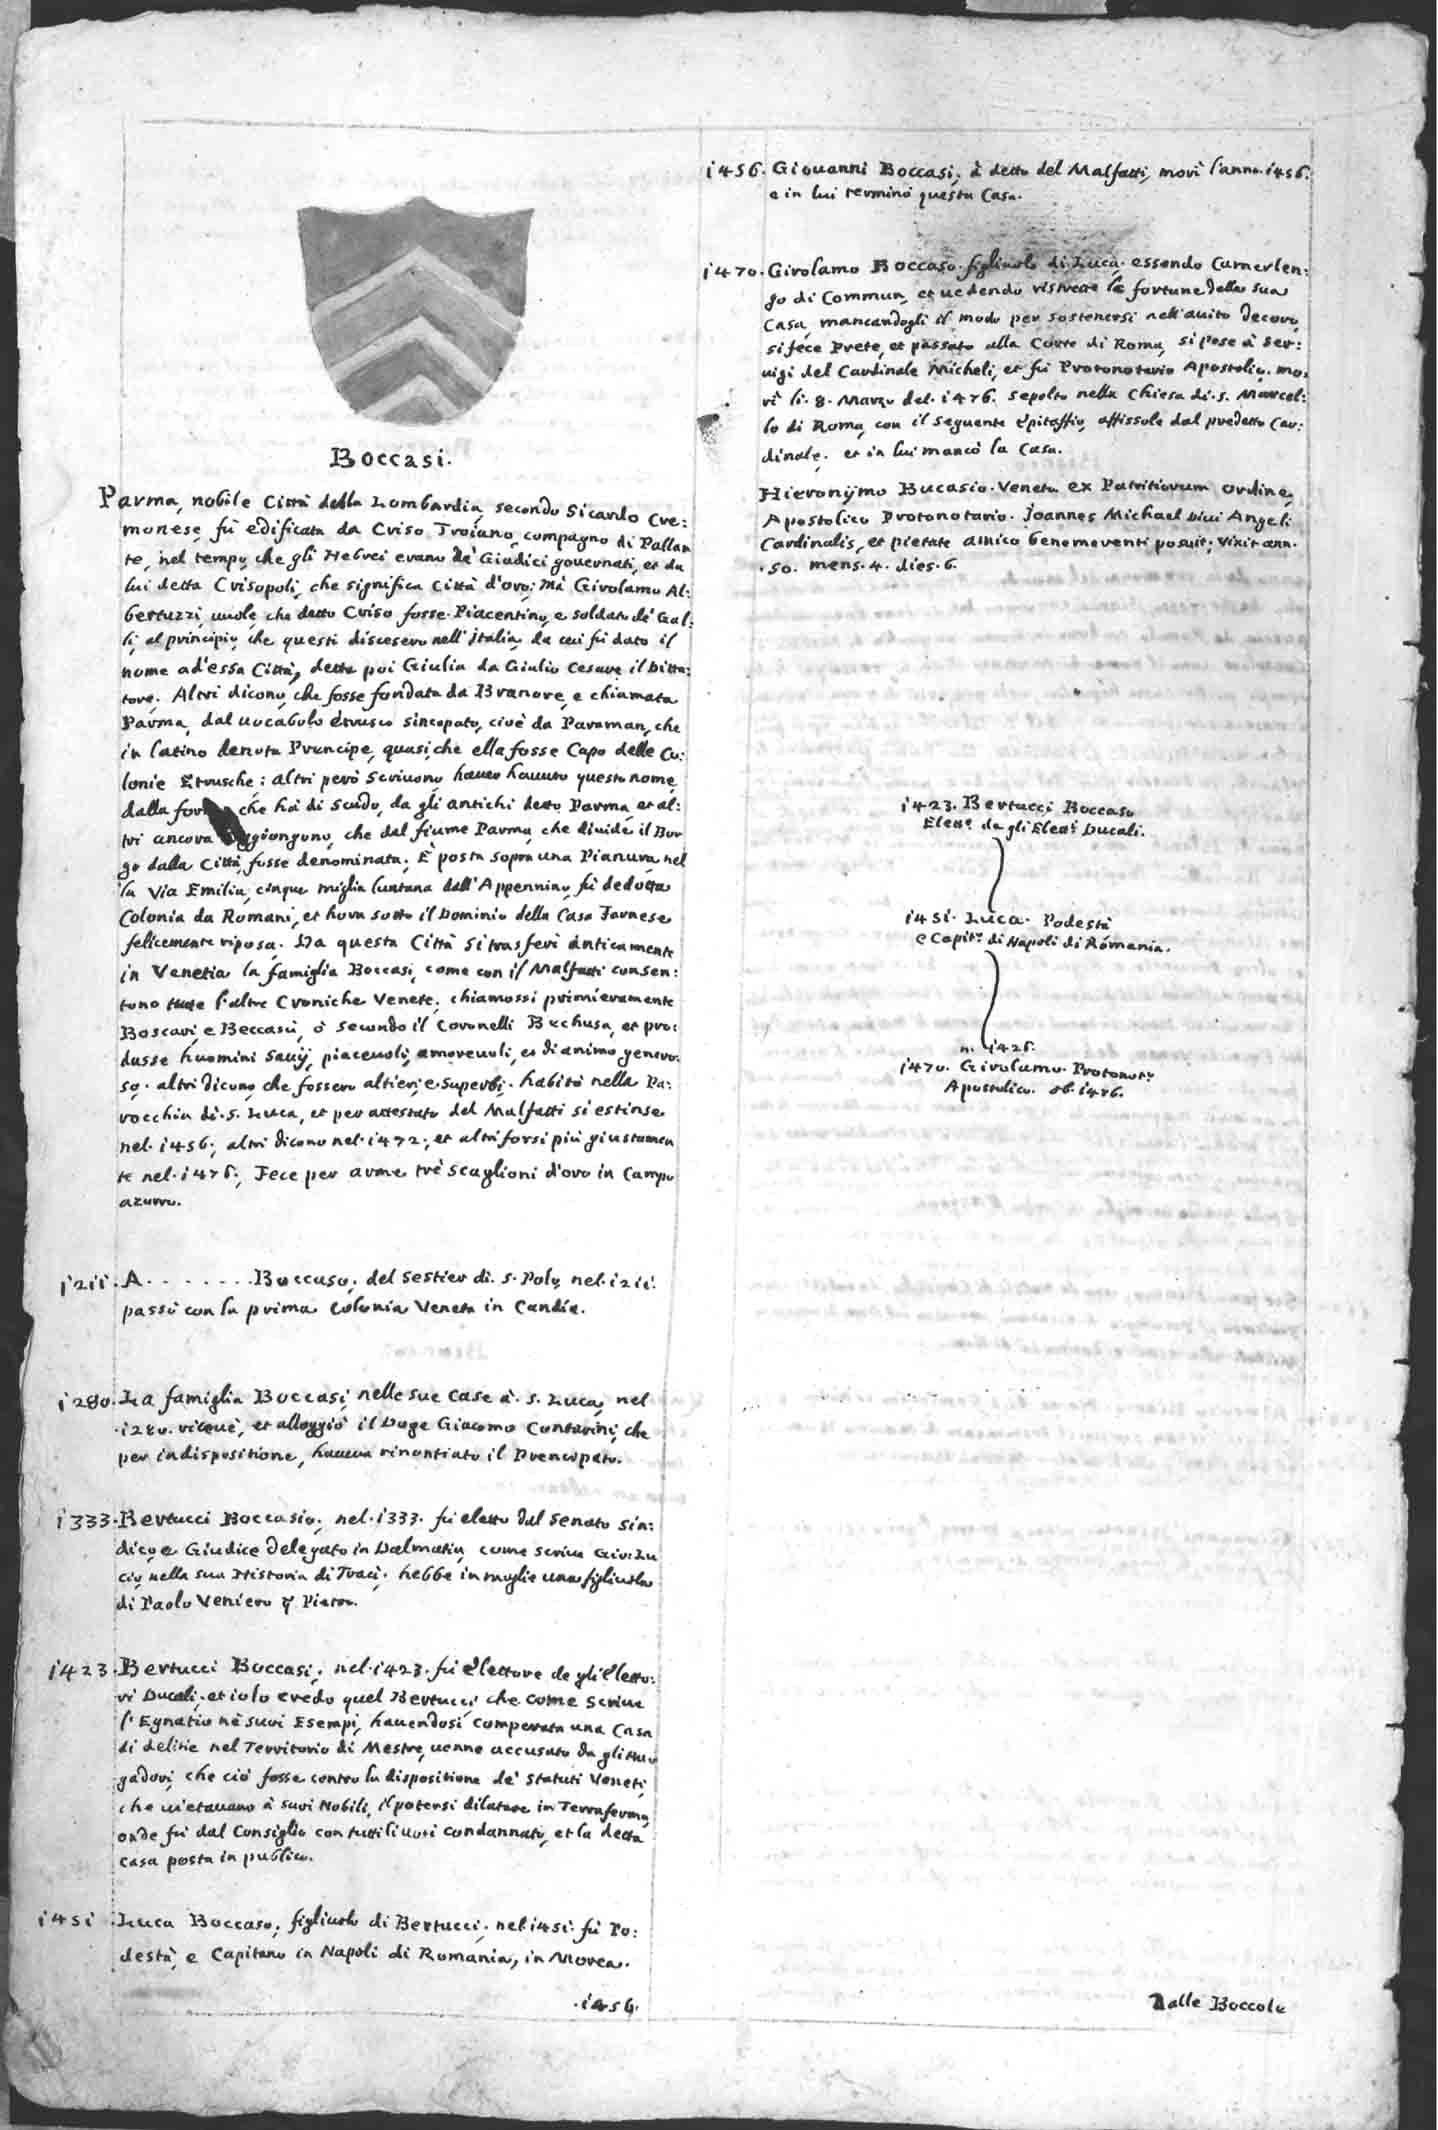 Boccasi.
Parma, nobile Città della Lombardia, secondo Sicardo Cre:
monese, fù edificata da Criso Troiano, compagno di Pallan
te, nel tempo, che gli Hebrei erano dà Giudici gouernati, et da
lui detta Crisopoli, che significa Città d'oro; mà Girolamo Al:
bertuzzi, uuole, che detto Criso fosse Piacentino, e soldato dè Gal:
li, al principio, che questi discesero nell'Italia, da cui fù dato il
nome ad'essa Città, detta poi Giulia da Giulio Cesare il Ditta:
tore. Altri dicono, che fosse fondata da Branore, e chiamata
Parma, dal uocabolo étrusco sincopato, cioè da Paraman, che
in latino denota Prencipe, quasi, che ella fosse Capo delle Co:
lonie Etrusche: altri però scriuono, hauer hauuto questo nome,
dalla che hà di Scudo, da gli antichi detto Parma, et al:
tri ancora aggiongono, che dal fiume Parma, che diuide il Bor
go dalla Città, fosse denominata. È posta sopra una Pianura, nel
la Via Emilia, cinque miglia lontana dall'Appennino, fù dedotta
Colonia da Romani, et hora sotto il Dominio della Casa Farnese
felicemente riposa. Da questa Città si trasferì anticamente
in Venetia la famiglia Boccasi, come con il Malfatti consen:
tono tutte l'altre Croniche Venete. chiamossi primieramente
Boscari, e Beccasù, ò secondo il Coronelli Buchusa, et pro:
dusse huomini Sauij, piaceuoli, amoreuoli, et di animo genero:
so. altri dicono che fossero altieri, e superbi. habitò nella Pa:
rocchia di S. Luca, et per attestato del Malfatti si estinse
nel 1456; altri dicono nel 1472., et altri forsi più giustamen
te nel 1476., Fece per arme trè scaglioni d'oro in Campo
azurro.
1211. A. . . . . . . . Boccaso, del Sestier di S. Polo, nel 1211.
passò con la prima Colonia Veneta in Candia.
1280. La famiglia Boccasi, nelle sue case à S. Luca, nel
1280. riceuè, et alloggiò il Doge Giacomo Contarini, che
per indispositione, haueua rinontiato il Prencipato.
1333. Bertucci Boccasio, nel 1333. fù eletto dal Senato Sin:
dico, e Giudice delegato in Dalmatia, come scriue Gio: Lu
cio nella sua Historia di Traù. hebbe in moglie una figliuola
di Paolo Veniero q. Pietro.
1423. Bertucci Boccasi, nel 1423. fù èlettore de gli èletto:
ri Ducali, et io lo credo quel Bertucci, che come scriue
l'Egnatio nè suoi Esempi, hauendosi comperata una Casa
di delitie nel Territorio di Mestre, uenne accusato da gli Auo
gadori, che ciò fosse contro la dispositione de' Statuti Veneti,
che uietauano à suoi Nobili, il potersi dilatare in Terraferma,
onde fù dal Consiglio con tutti li uoti condannato, et la detta
casa posta in publico.
1451 Luca Boccaso, figliuolo di Bertucci, nel 1451. fù Po:
destà, e Capitano in Napoli di Romania, in Morea.
1456.
1456. Giouanni Boccasi, à detto del Malfatti, morì l'anno 1456.
e in lui terminò questa Casa.
1470. Girolamo Boccaso figliuolo di Luca, essendo Camerlen:
go di Commun, et uedendo ristrette le fortune della sua
Casa, mancandogli il modo per sostenersi nell'auito decoro,
si fece Prete, et passato alla Corte di Roma, si pose à ser:
uigi del Cardinale Micheli, et fù Protonotario Apostolico. mo:
rì li 8. Marzo del 1476. sepolto nella Chiesa di S. Marcel:
lo di Roma, con il seguente èpitaffio, affissole dal predetto Car:
dinale. et in lui mancò la Casa.
Hieronijmo Bucasio Veneto ex Patritiorum ordine,
Apostolico Protonotario. Joannes Michael Diui Angeli
Cardinalis, et pietate amico benemerenti posuit; vixit ann.
50. mens. 4. dies. 6.
1423. Bertucci Boccaso
Elettr. da gli Elettri. Ducali.
1451. Luca. Podestà
e Capitno. di Napoli di Romania.
n. 1426.
1470. Girolamo Protonotro.
Apostolico. ob. 1476.
Dalle Boccole